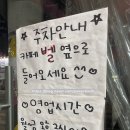 ☆주차안내☆
카페 벨 옆으로
들어오세요^^
○영업시간○